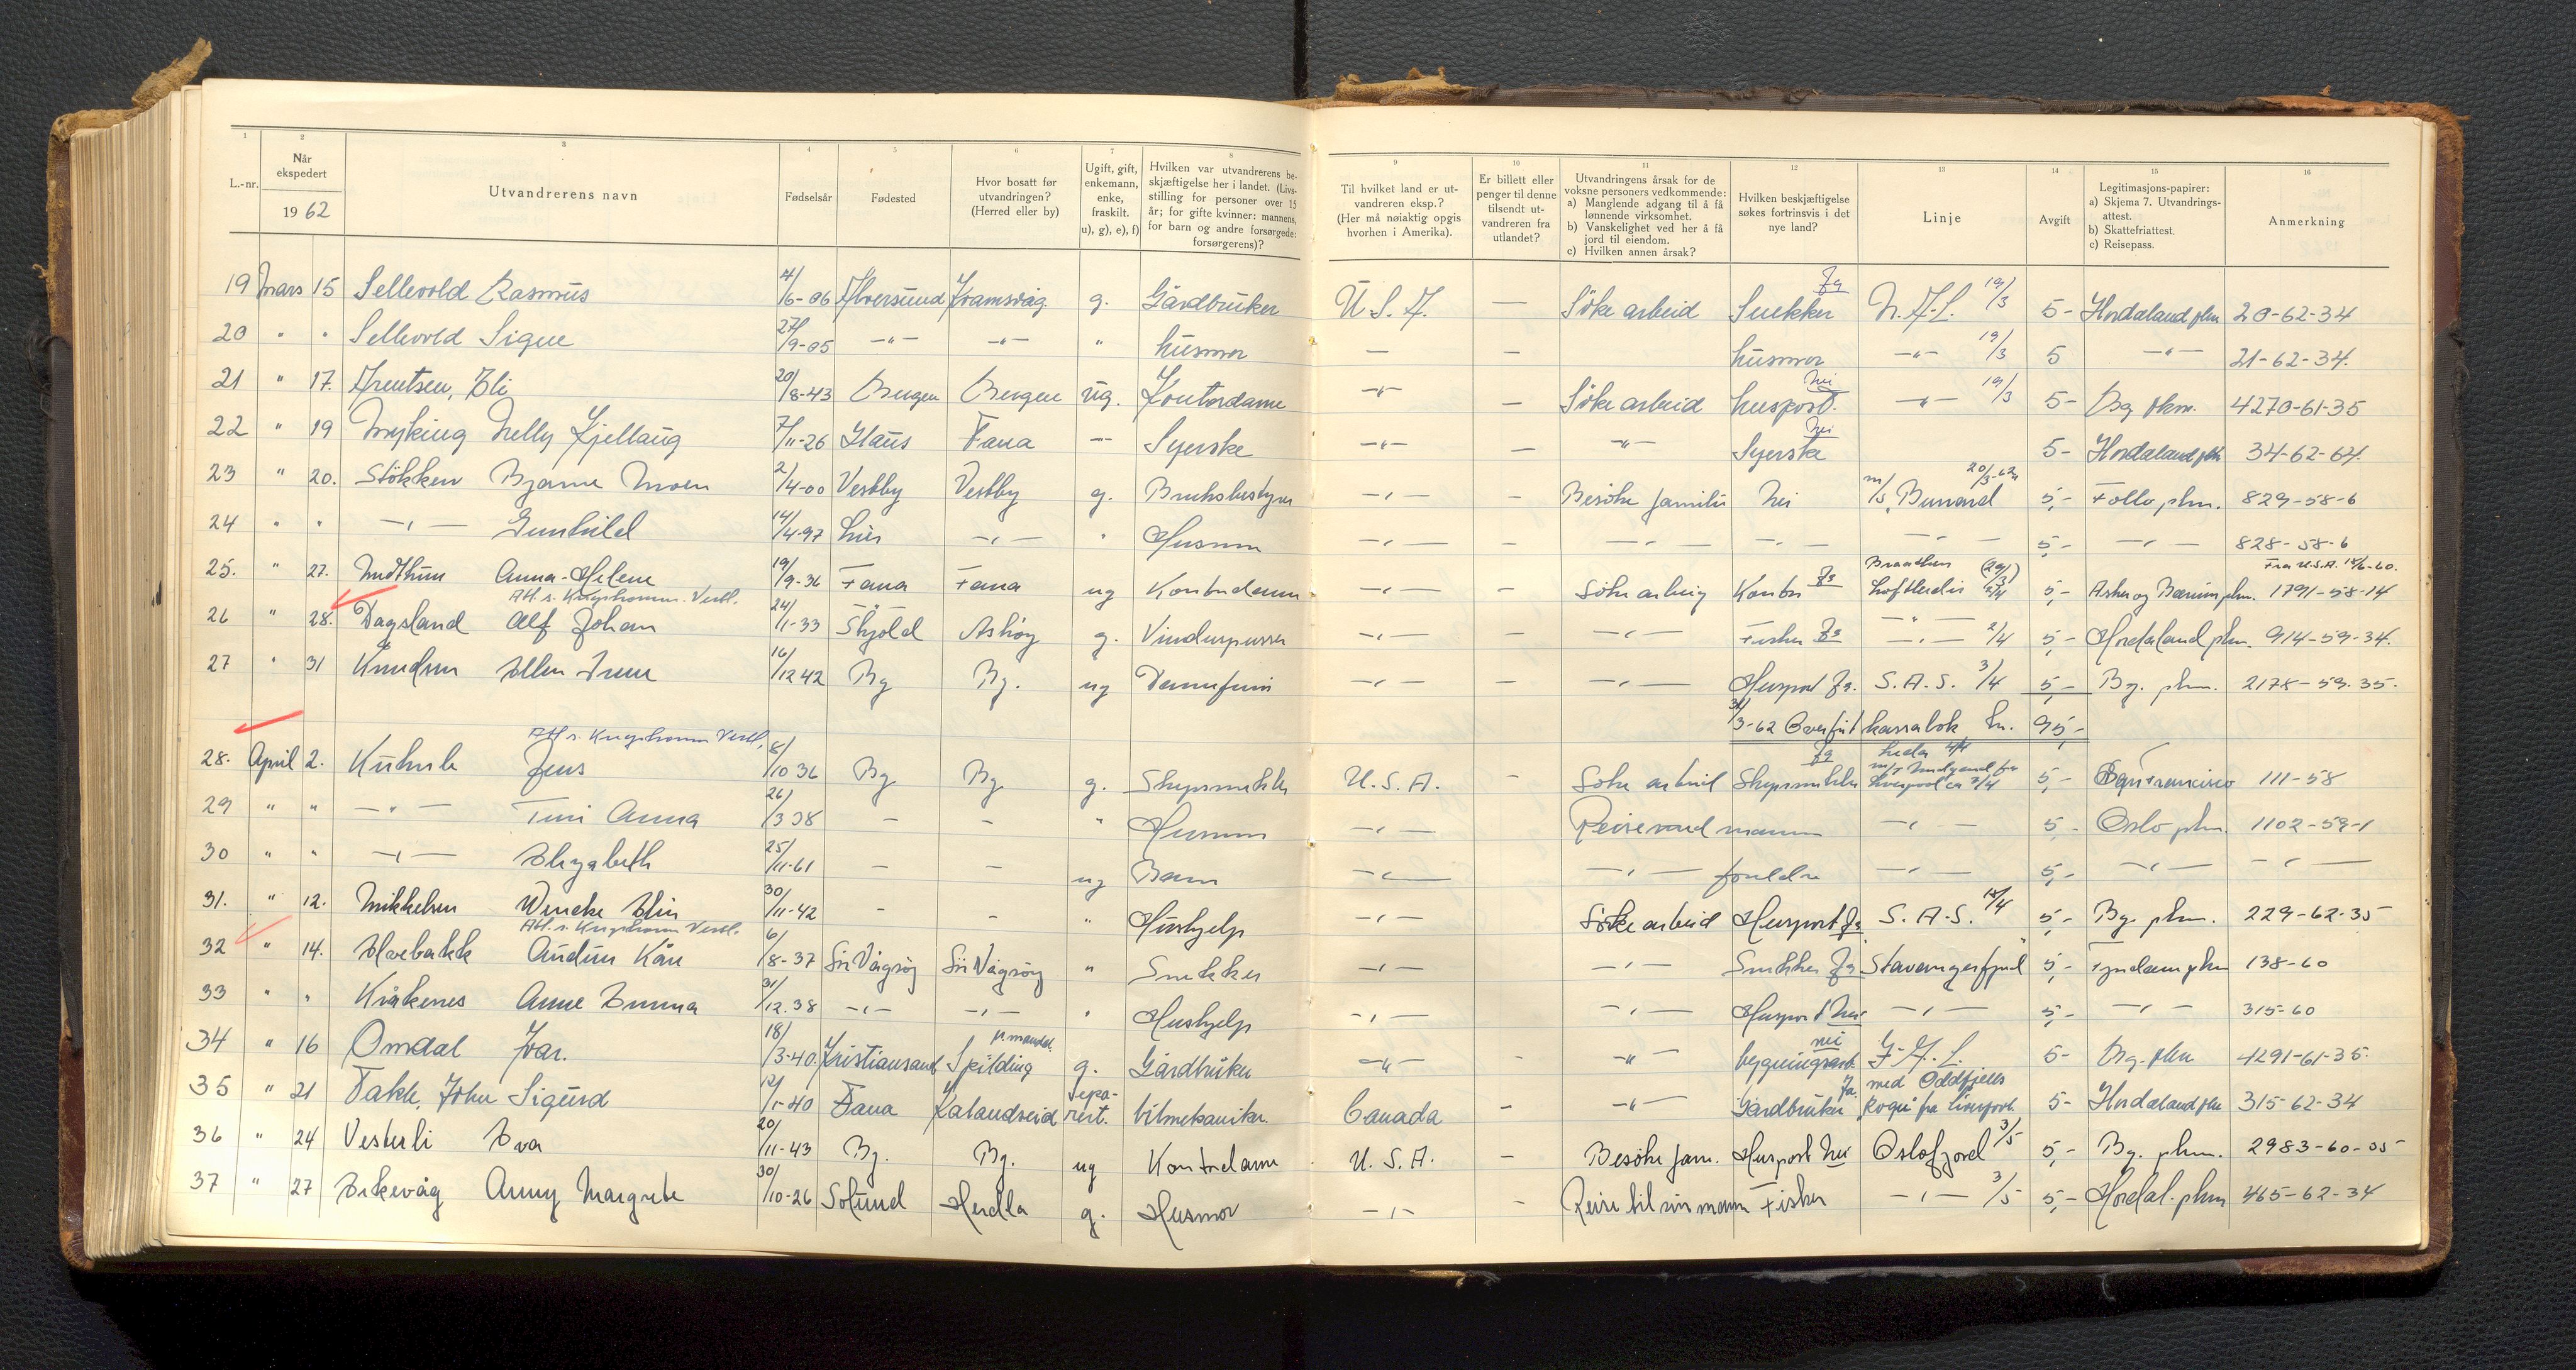 1 2 3 4 5 6 7 8 9 10 11 12 13 14 15 16
L.-nr. | Når ekspedert 19 62 | Utvandrerens navn | Fødselsår | Fødested | Hvor bosatt før utvandringen? (Herred eller by) | Ugift, gift, enkemann, enke, fraskilt. u), g), e), f) | Hvilken var utvandrerens beskjæftigelse her i landet. (Livsstilling for personer over 15 år; for gifte kvinner: mannens, for barn og andre forsørgede: forsørgerens)? | Til hvilket land er utvandreren eksp.? (Her må nøiaktig opgis hvorhen i Amerika). | Er billett eller penger til denne tilsendt utvandreren fra utlandet? | Utvandringens årsak for de voksne personers vedkommende: a) Manglende adgang til å få lønnende virksomhet. b) Vanskelighet ved her å få jord til eiendom. c) Hvilken annen årsak? | Hvilken beskjæftigelse søkes fortrinsvis i det nye land? | Linje | Avgift | Legitimasjons-papirer: a) Skjema 7. Utvandringsattest. b) Skattefriattest. c) Reisepass. | Anmerkning
19 Mars 15 Sellevold Rasmus 4/6-06 Alversund Kramsvåg g. Gårdbruker U.S.A. — Söke arbeid Snekker Ja N.A.L. 19/3 5- Hordaland pkm 20-62-34
20 " " Sellevold Signe 27/9-05 —"— —"— " husmor — — husmor —"— 19/3 5 —"— 21-62-34.
21 " 17. Arentsen, Eli 20/8-43 Bergen Bergen ug. Kontordame —"— — Söke arbeid huspost. Nei —"— 19/3 5- Bg. pkm. 4270-61-35
22 " 19 Myking Nelly Kjellaug 7/11-26 Glaus Fana — Syerske —"— — —"— Syerske Nei 5- Hordaland pkm 34-62-64.
23 " 20. Stökken Bjarne Moen 2/4-00 Vestby Vestby g. Bruksbestyrer —"— — Besöke familie Nei m/s Burrard 20/3-62 5,- Follo pkm. 829-58-6
24 " " —"— Gunhild 14/4-97 —"— " Husmor —"— — —"— —"— —"— 5,- —"— 828-58-6
Fra U.S.A. 18/6-60.
25. " 27. Midthun Anna-Helene 19/9-36 Fana Fana ug Kontordame —"— — Söke arbeid Kontor Ja Braathens Loftleidir 5,- Asker og Bærum pkm. 1791-58-14
26 " 28. Dagsland Alf Johan 24/1-33 Skjold Askøy g. Vinduspusser —"— — —"— Fisker Ja —"— 2/4 5,- Hordaland pkm. 914-59-34.
27 " 31 Knudsen Ellen Irene 16/12 42 Bg Bg. ug Damefrisør —"— — —"— Huspost Ja. S.A.S. 3/4 5,- Bg. pkm. 2178-59-35.
31/3-62 Overført kassabok kr. 95,-
28. April 2. Jens 8/10 36 Bg. Bg. g. Skipsmekler U.S.A. — Söke arbeid Skipsmekler Ja Leda 4/4 5,- San Francisco 111-58
29 " " —"— Turi Anna 26/3 38 — — " Husmor —"— Reise med mannen —"— 5,- Oslo pkm. 1102-59-1
30 " " —"— Elizabeth 25/11-61 — — ug Barn —"— —"— foreldre —"— 5,- —"— —"—
31. " 12. Mikkelsen Wencke Elin 30/11-42 - - " Hushjelp —"— Söke arbeid Huspost Ja S.A.S. 15/4 5,- Bg. pkm. 229-62-35
32 " 14. Elvebakk Audun Kåre 6/8-37 Sör Vågsøy Sör Vågsøy " Snekker —"— —"— Snekker Ja Stavangerfjord 5,- 138-60
33 " " Kråkenes Anne Emma 31/12.38 —"— —"— " Hushjelp —"— —"— Huspost Nei —"— 5,- —"— 315-60
34 " 16 Omdal Ivar. 18/3-40. Kristiansand Spilding p. mandal. g. Gårdbruker —"— - —"— bygningsarb. nei G.A.L. 5- Bg. pkm 4291-61-35.
35 " 21 Takle, John Sigurd 12/1-40 Fana Kalandseid Separert. bilmekaniker. Canada - —"— Gårdbruker Ja. med Oddfjells fra Liverpool. 5- Hordaland pkm 315-62-34
36 " 24 Vesterli Eva 20/11-43 Bg. Bg. ug Kontordame U.S.A. - Besöke fam. Huspost Nei Oslofjord 3/5 5,- Bg. pkm. 2983-60-35
37 " 27 Askevåg Anny Margrete 30/10-26 Solund Herdla g. Husmor —"— - Reise til sin mann Fisker —"— 3/5 5,- Hordal. pkm 465-62-34